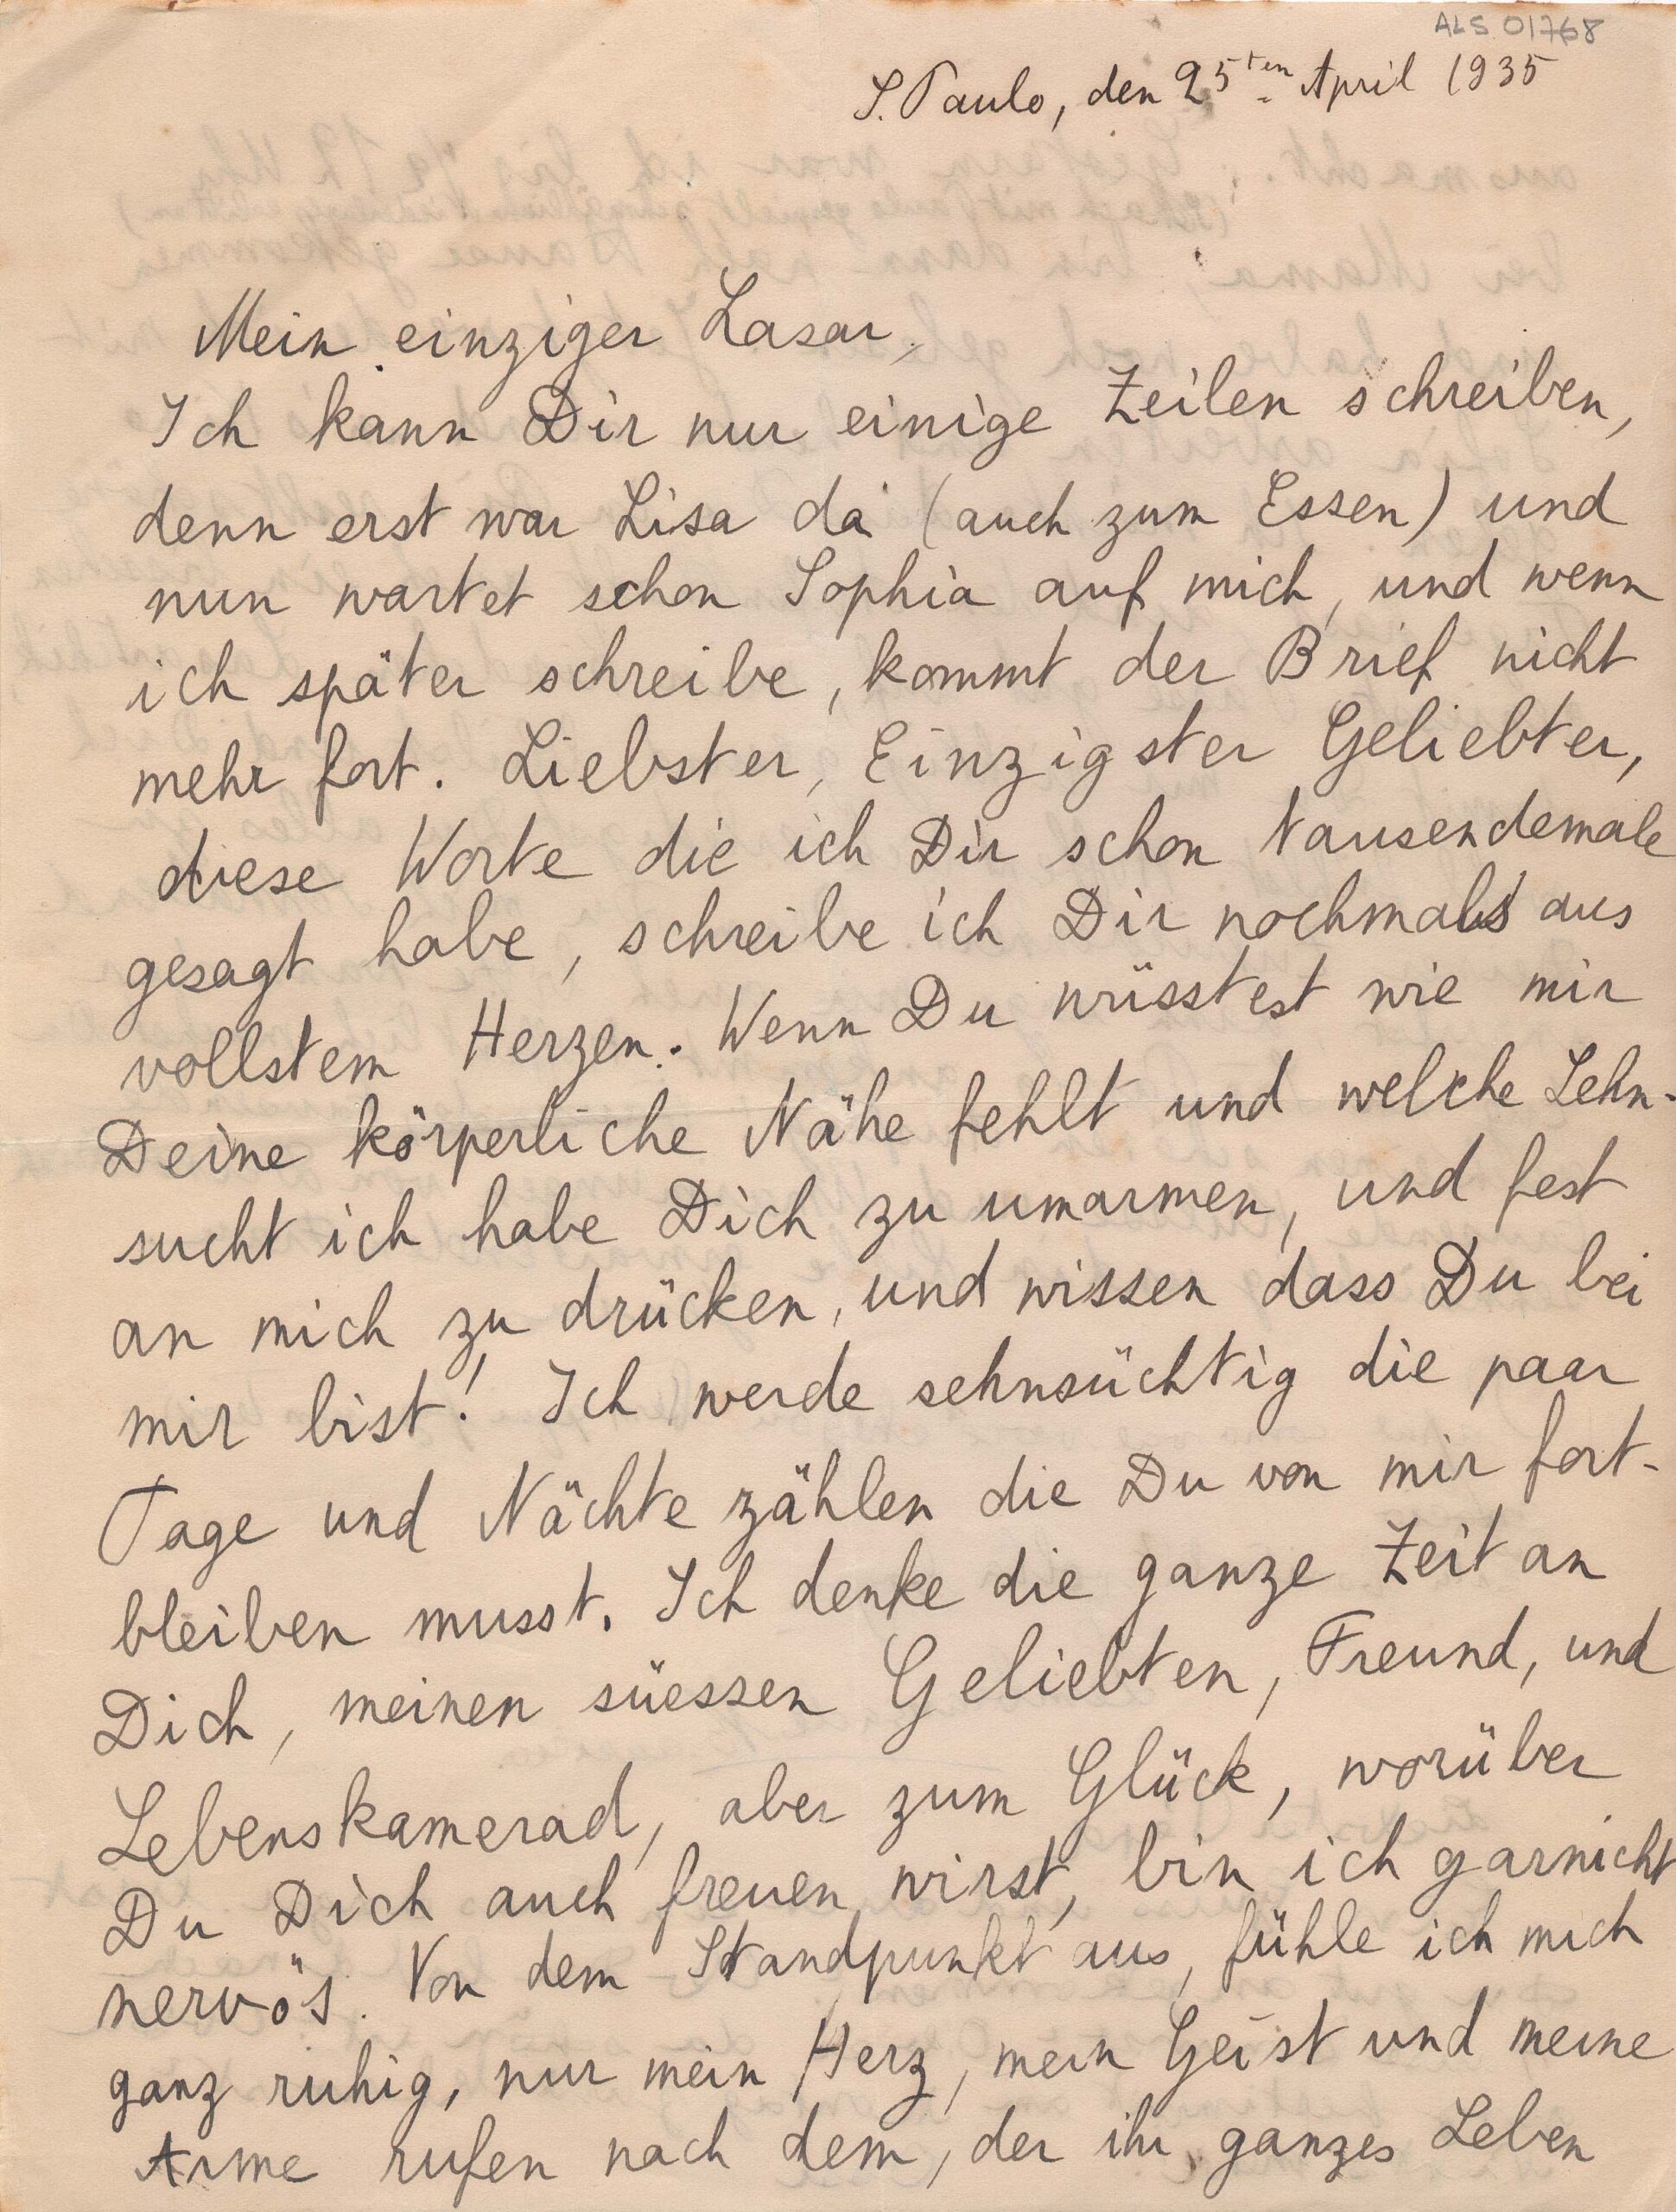 ALS 01768
S. Paulo, den 25ten April 1935
Mein einziger Lasar,
Ich kann Dir nur einige Zeilen schreiben,
denn erst war Lisa da (auch zum Essen) und
nun wartet schon Sophia auf mich, und wenn
ich später schreibe, kommt der Brief nicht
mehr fort. Liebster, Einzigster Geliebter,
diese Worte die ich Dir schon tausendemale
gesagt habe, schreibe ich Dir nochmals aus
vollstem Herzen. Wenn Du wüsstest wie mir
Deine körperliche Nähe fehlt und welche Sehn-
sucht ich habe Dich zu umarmen, und fest
an mich zu drücken, und wissen dass Du bei
mir bist! Ich werde sehnsüchtig die paar
Tage und Nächte zählen die Du von mir fort-
bleiben musst. Ich denke die ganze Zeit an
Dich, meinen süessen Geliebten, Freund, und
Lebenskamerad, aber zum Glück, worüber
Du Dich auch freuen wirst, bin ich garnicht
nervös. Von dem Standpunkt aus, fühle ich mich
ganz ruhig, nur mein Herz, mein Geist und meine
Arme rufen nach dem, der ihr ganzes Leben